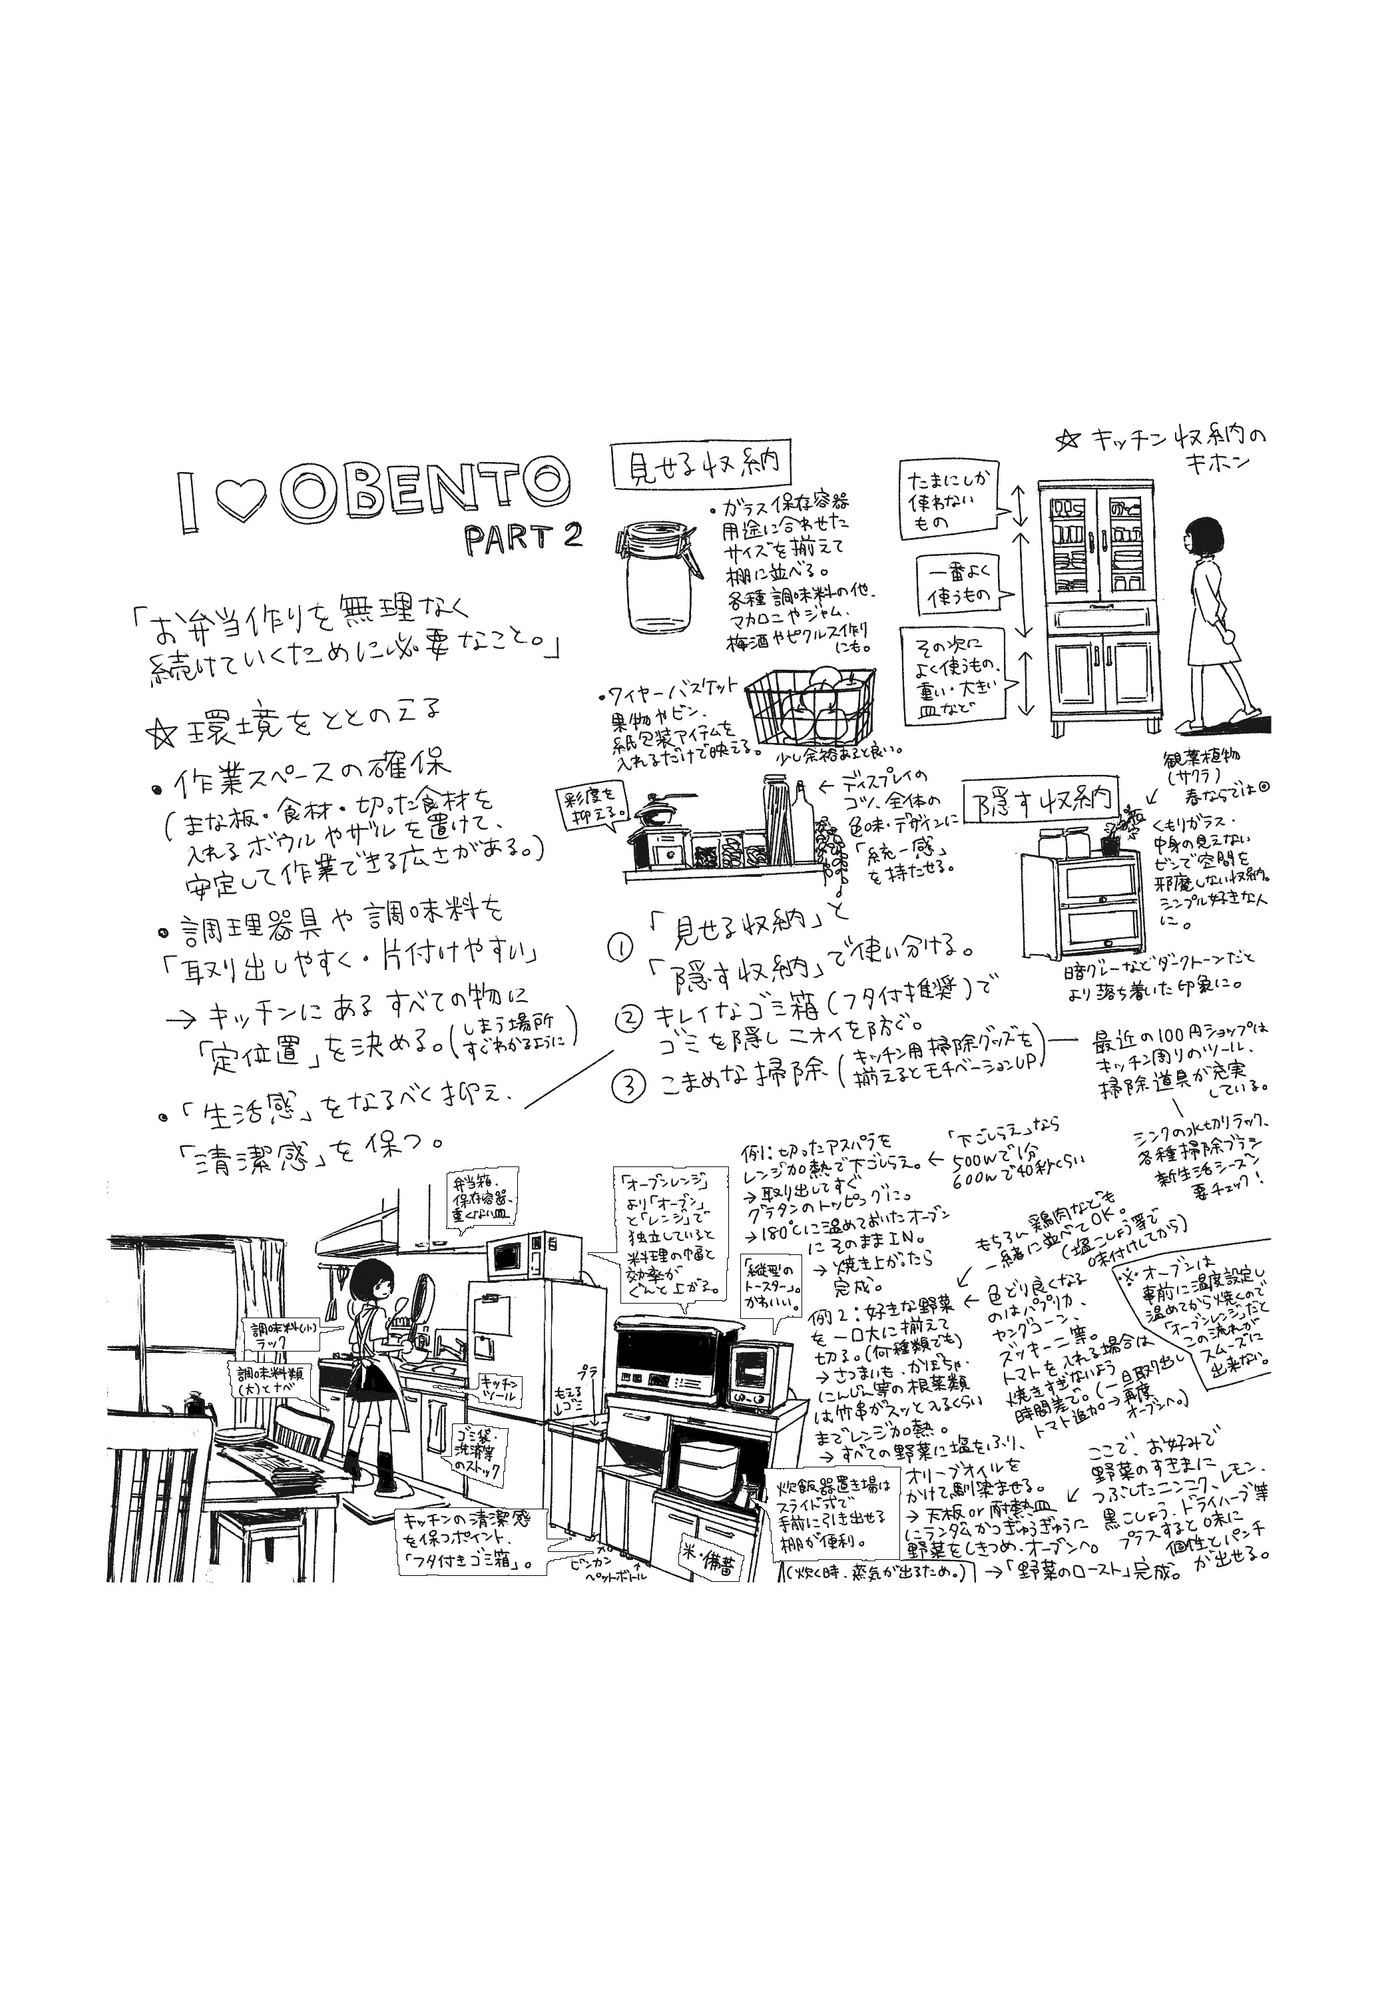 I ♡ OBENTO
PART 2
「お弁当作りを無理なく
続けていくために必要なこと。」
☆環境をととのえる
・作業スペースの確保
(まな板・食材・切った食材を
入れるボウルやザルを置けて、
安定して作業できる広さがある。)
・調理器具や調味料を
「取り出しやすく・片付けやすい」
→キッチンにあるすべての物に
「定位置」を決める。(しまう場所
すぐわかるように)
・「生活感」をなるべく抑え、
「清潔感」を保つ。
見せる収納
・ガラス保存容器
用途に合わせた
サイズを揃えて
棚に並べる。
各種調味料の他、
マカロニやジャム、
梅酒やピクルス作り
にも。
・ワイヤーバスケット
果物やビン、
紙包装アイテムを
入れるだけで映える。
少し余裕あると良い。
彩度を
抑える。
←ディスプレイの
コツ、全体の
色味・デザインに
「統一感」
を持たせる。
☆キッチン収納の
キホン
たまにしか
使わない
もの
一番よく
使うもの
その次に
よく使うもの、
重い・大きい
皿など
隠す収納
観葉植物
(サクラ)
春ならでは◎
くもりガラス・
中身の見えない
ビンで空間を
邪魔しない収納。
シンプル好きな人
に。
暗グレーなどダークトーンだと
より落ち着いた印象に。
①「見せる収納」と
「隠す収納」で使い分ける。
②キレイなゴミ箱(フタ付推奨)で
ゴミを隠しニオイを防ぐ。
③こまめな掃除(キッチン用掃除グッズを
揃えるとモチベーションUP)
最近の100円ショップは
キッチン周りのツール、
掃除道具が充実
している。
シンクの水切りラック、
各種掃除ブラシ
新生活シーズン
要チェック!
例1:切ったアスパラを
レンジ加熱で下ごしらえ。←
→取り出してすぐ
グラタンのトッピングに。
→180℃に温めておいたオーブン
にそのままIN。
→焼き上がったら
完成。
「下ごしらえ」なら
500Wで1分
600Wで40秒くらい
例2:好きな野菜
を一口大に揃えて
切る。(何種類でも)
→さつまいも、かぼちゃ、
にんじん等の根菜類
は竹串がスッと入るくらい
までレンジ加熱。
→すべての野菜に塩をふり、
オリーブオイルを
かけて馴染ませる。
→天板or耐熱皿
にランダムかつぎゅうぎゅうに
野菜をしきつめ、オーブンへ。
→「野菜のロースト」完成。
もちろん鶏肉なども
一緒に並べてOK。
(塩こしょう等で
味付けしてから)
色どり良くなる
のはパプリカ、
ヤングコーン、
ズッキーニ等。
トマトを入れる場合は
焼きすぎないよう
時間差で。(一旦取り出し
トマト追加→再度
オーブンへ。)
※オーブンは
事前に温度設定し
温めてから焼くので
「オーブンレンジ」だと
この流れが
スムーズに
出来ない。
ここで、お好みで
野菜のすきまに
つぶしたニンニク、レモン、
黒こしょう、ドライハーブ等
プラスすると味に
個性とパンチ
が出せる。
弁当箱、
保存容器、
重くない皿
「オーブンレンジ」
より「オーブン」
と「レンジ」で
独立していると
料理の幅と
効率が
ぐんと上がる。
「縦型の
トースター」。
かわいい。
調味料(小)
ラック
調味料類
(大)とナベ
キッチン
ツール
ゴミ袋・
洗剤等
のストック
もえる
ゴミ
プラ
キッチンの清潔感
を保つポイント、
「フタ付きゴミ箱」。
ビンカン
ペットボトル
米・備蓄
炊飯器置き場は
スライド式で
手前に引き出せる
棚が便利。
(炊く時、蒸気が出るため。)